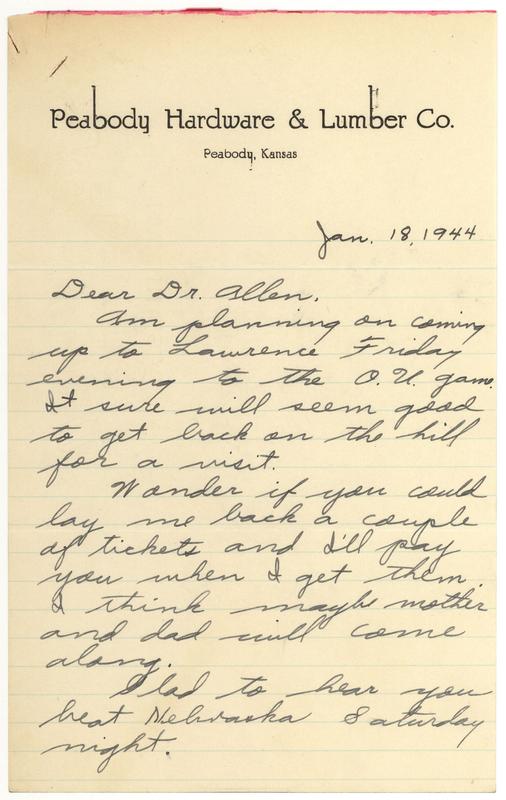 Peabody Hardware & Lumber Co.
Peabody, Kansas
Jan. 18, 1944
Dear Dr. Allen.
Am planning on coming
up to Lawrence Friday
evening to the O.U. game.
It sure will seem good
to get back on the hill
for a visit.
Wonder if you could
lay me back a couple
of tickets and I'll pay
you when I get them.
I think maybe mother
and dad will come
along.
Glad to hear you
beat Nebraska Saturday
night.